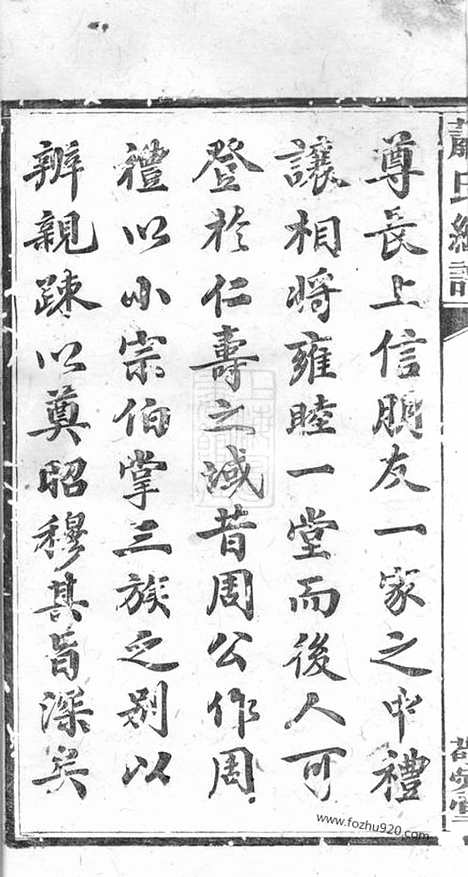 尊長上信朋友一家之中禮
讓相將雍睦一堂而後人可
登於仁壽之域昔周公作周
禮以小宗伯掌三族之別以
辨親疎以奠昭穆其旨深矣
www.fozhu920.com